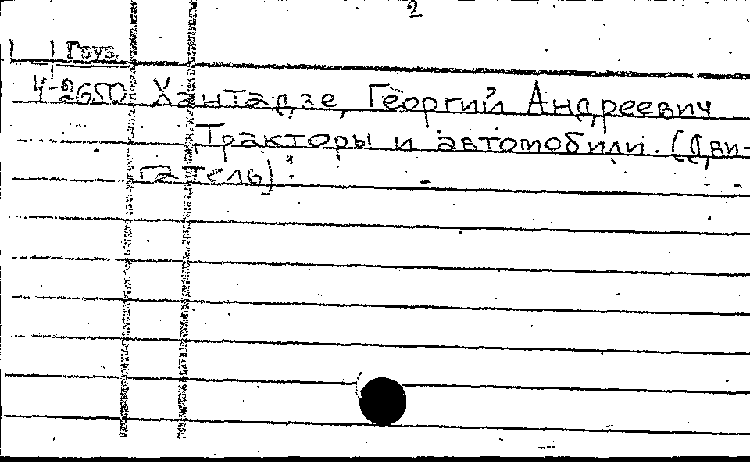 2
Груз.
4-2650 Хантадзе, Георгий Андреевич
Тракторы и автомобили. (Дви-
гатель)